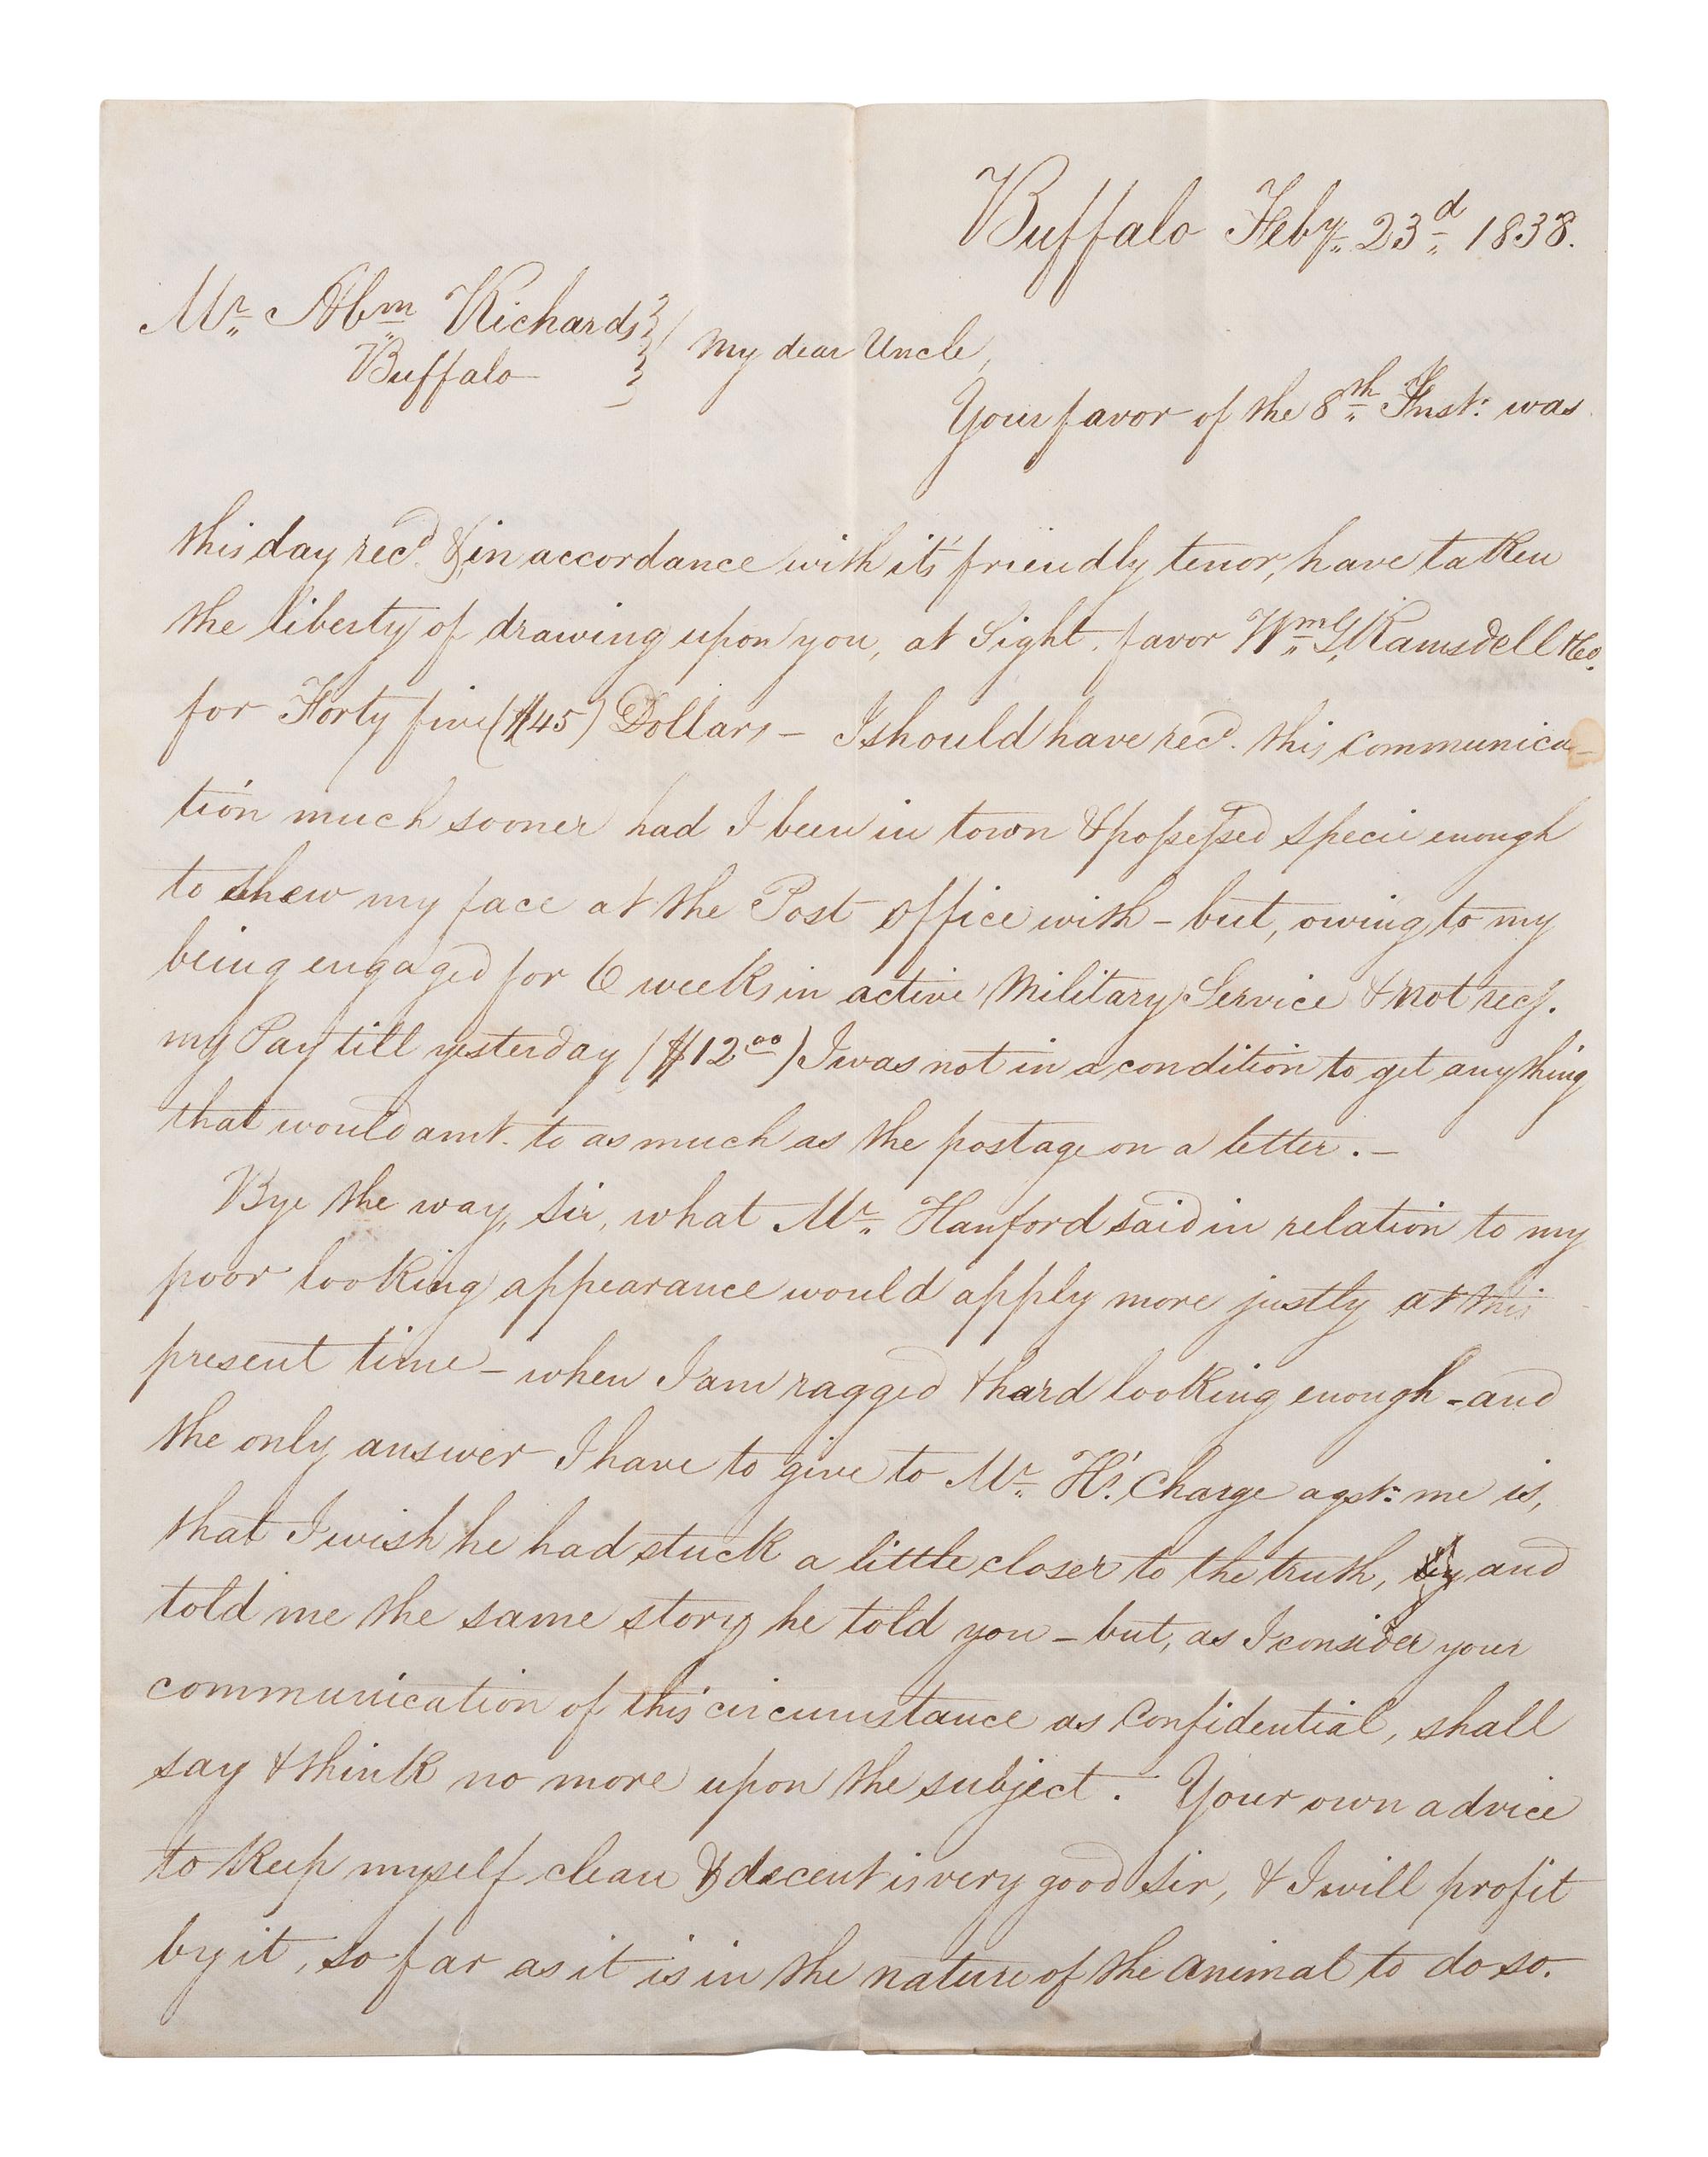 Buffalo Feby. 23d 1838.
Mr. Abm Richards
Buffalo
My dear Uncle,
Your favor of the 8th Inst: was
this day recd. & in accordance with it's friendly tenor, have taken
the liberty of drawing upon you, at Sight, favor Wm G Ramsdell & Co.
for Forty five ($45) Dollars – I should have recd. this communica-
tion much sooner had I been in town & possessed specie enough
to shew my face at the Post office with – but, owing to my
being engaged for 6 weeks in active Military Service & not recg.
my Pay till yesterday ($12 00) I was not in a condition to get any thing
that would amt. to as much as the postage on a letter. –
Bye the way, sir, what Mr. Hanford said in relation to my
poor looking appearance would apply more justly at this
present time – when I am ragged & hard looking enough – and
the only answer I have to give to Mr. H's. Charge agst: me is,
that I wish he had stuck a little closer to the truth, and
told me the same story he told you – but, as I consider your
communication of this circumstance as Confidential, shall
say & think no more upon the subject. Your own advice
to keep myself clean & decent is very good sir, & I will profit
by it, so far as it is in the nature of the animal to do so.